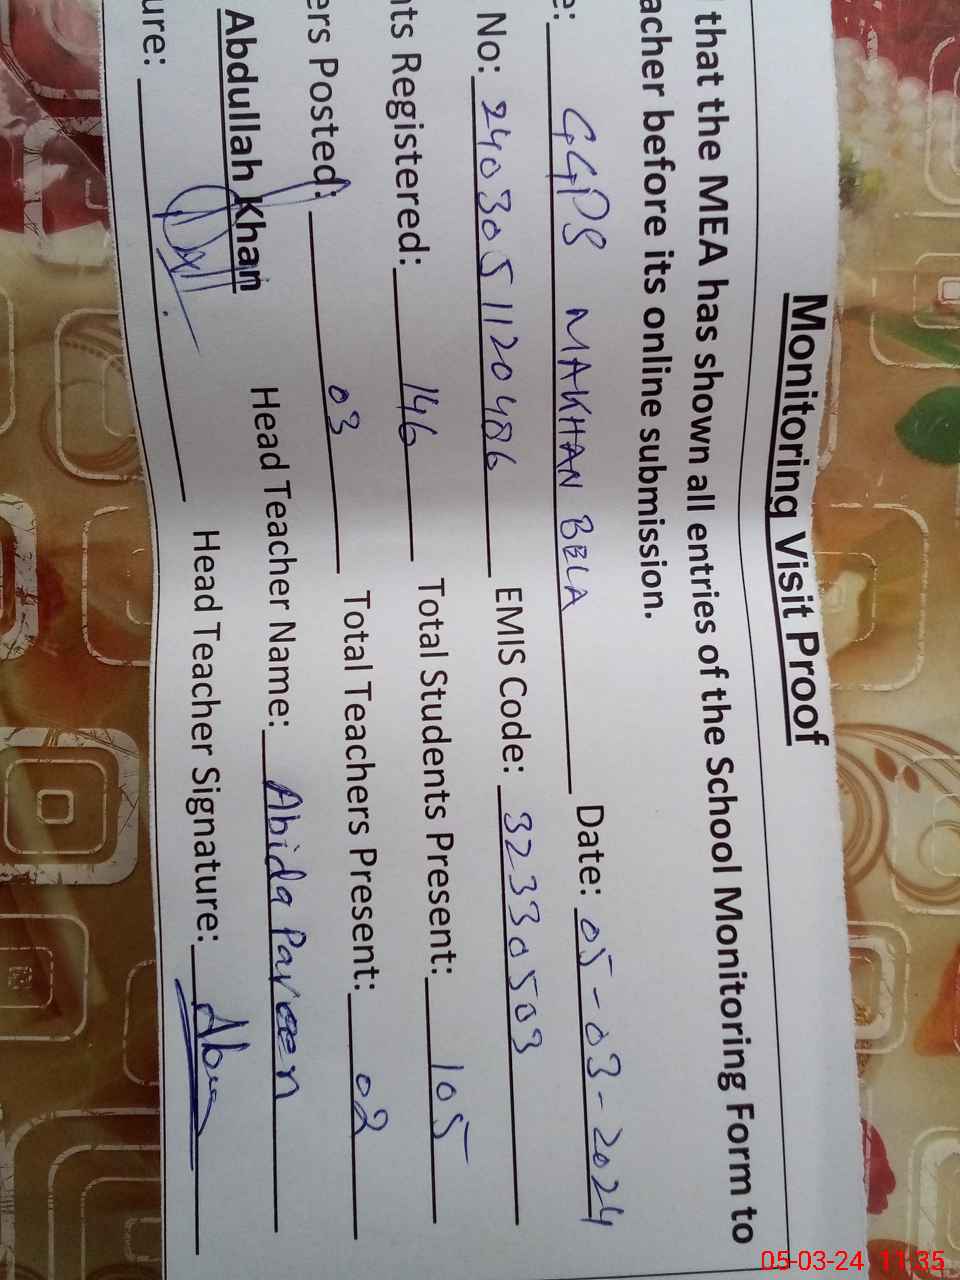 Monitoring Visit Proof
that the MEA has shown all entries of the School Monitoring Form to
acher before its online submission.
e: GGPS MAKHAN BELA Date: 05-03-2024
No: 2403051120486 EMIS Code: 32330503
nts Registered: 146 Total Students Present: 105
ers Posted: 03 Total Teachers Present: 02
Abdullah Khan Head Teacher Name: Abida Parveen
ure: Head Teacher Signature:
05-03-24 11:35